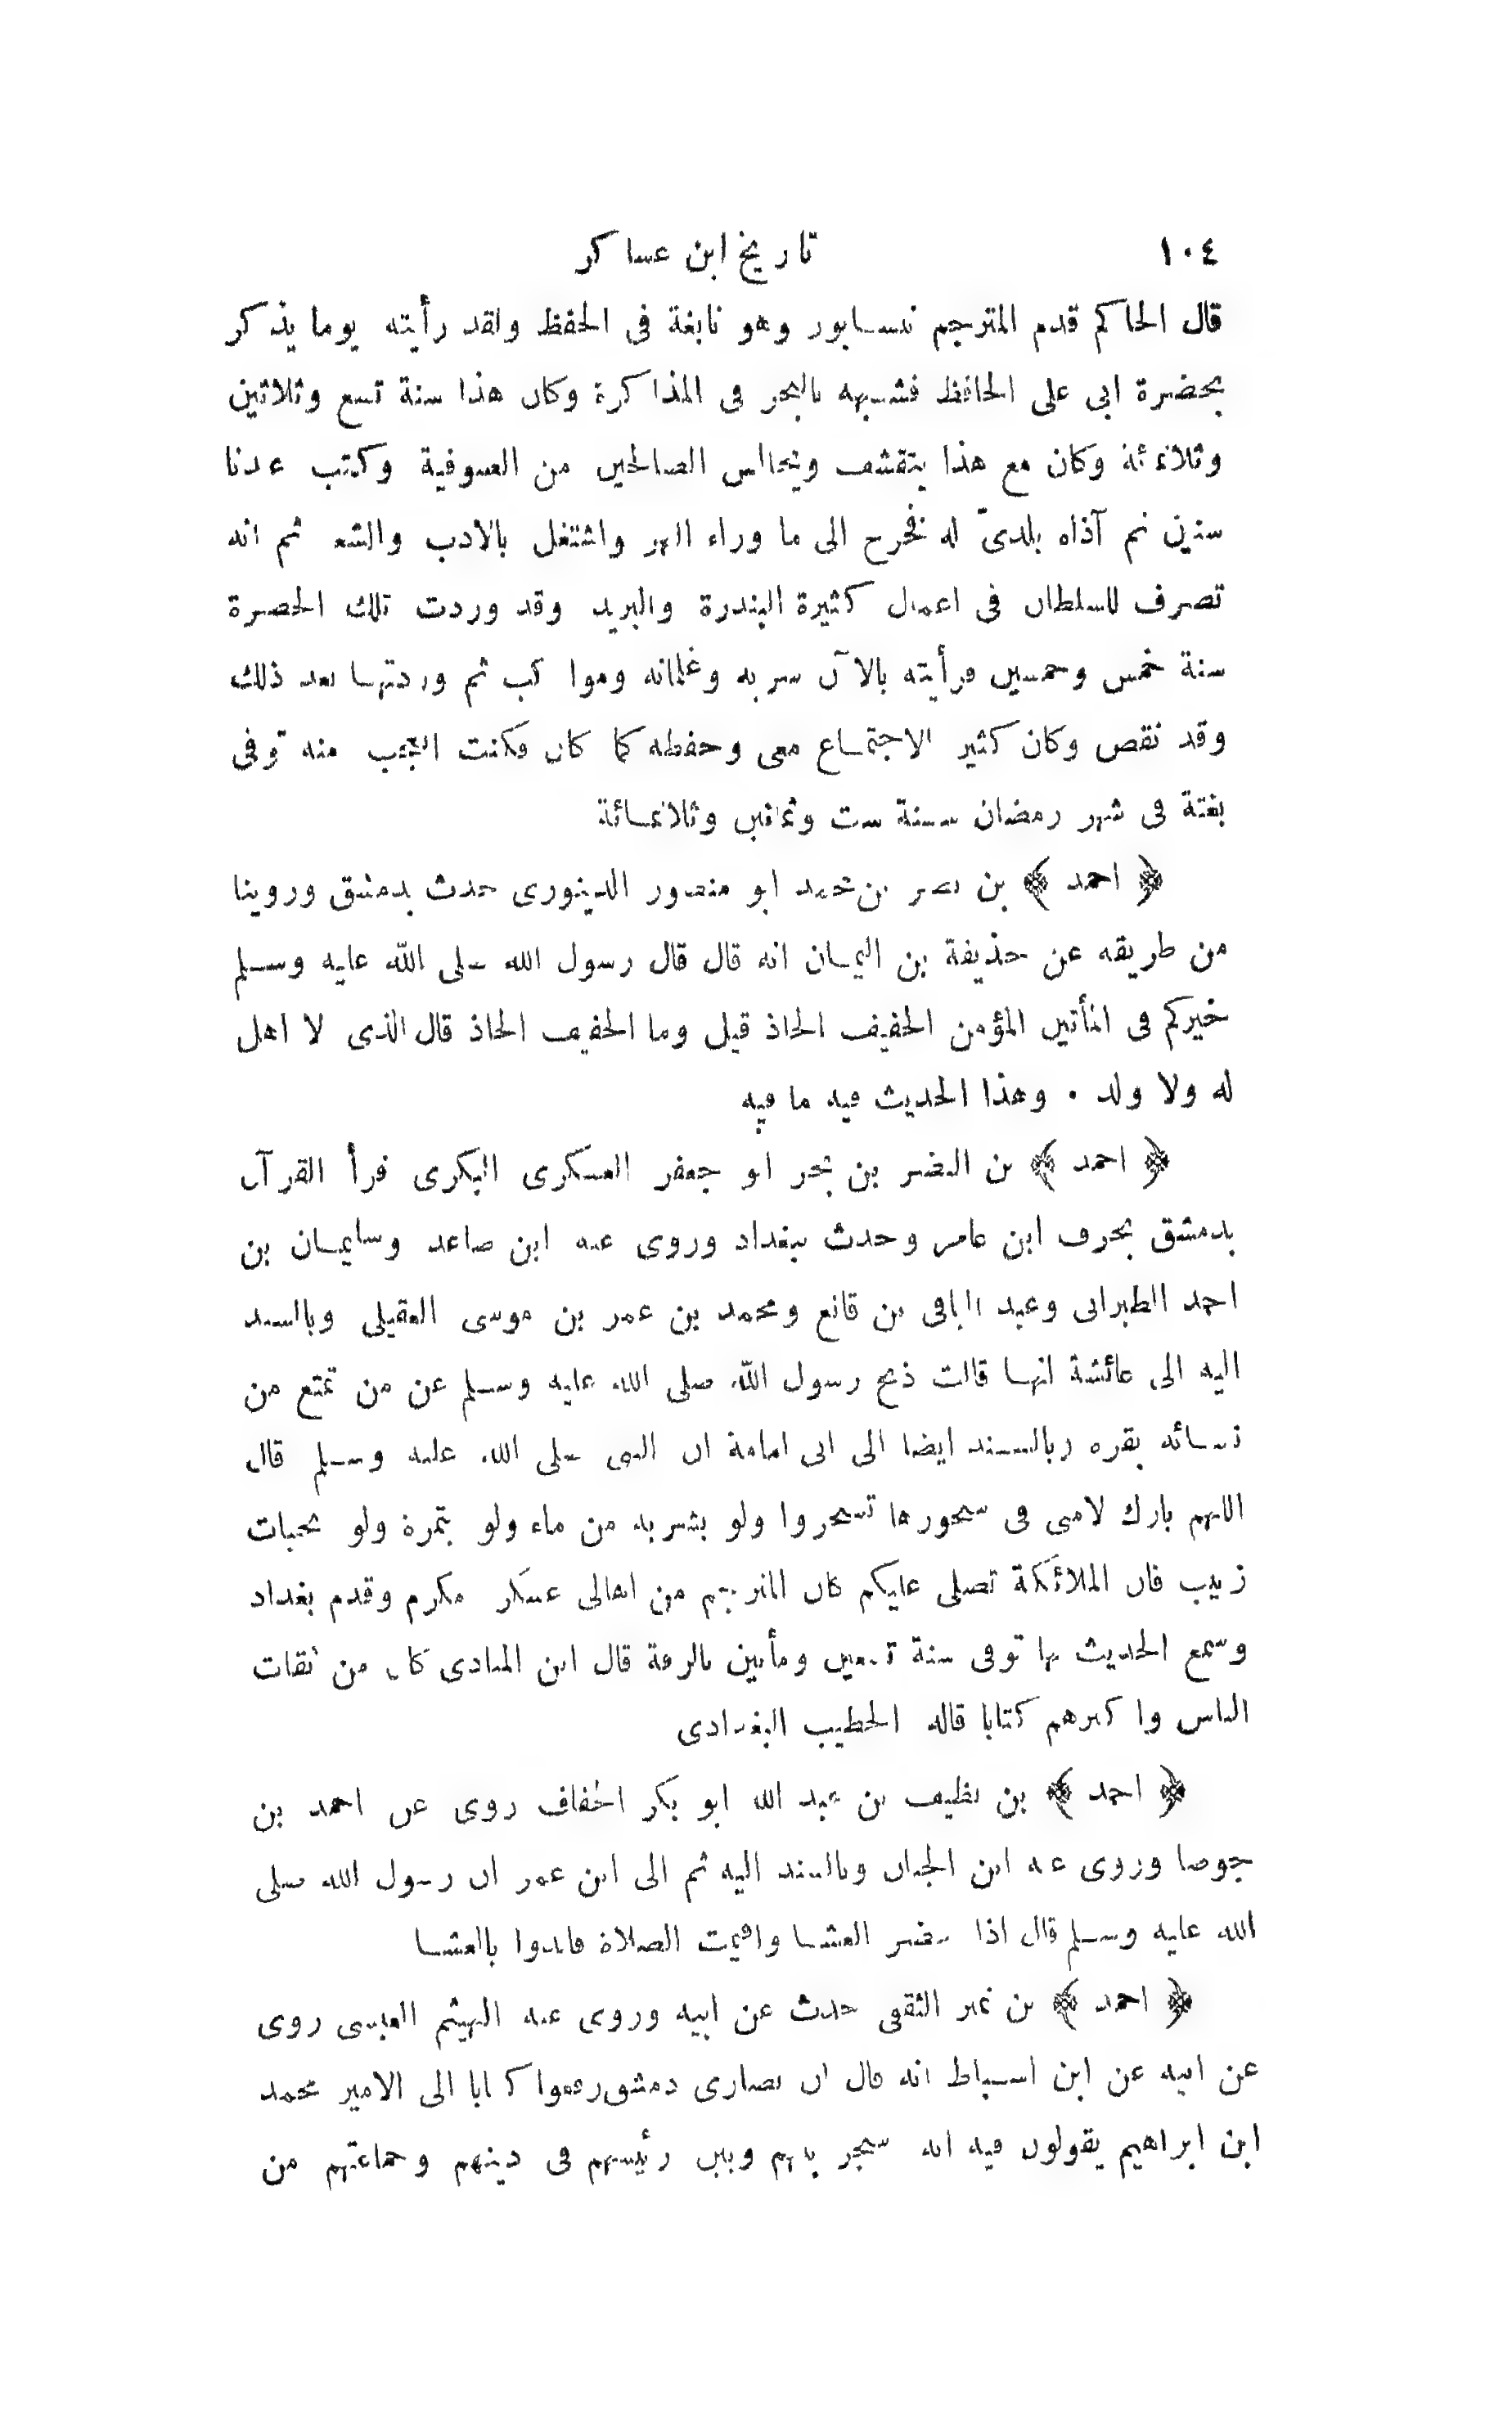 ١٠٤ تاريخ ابن عساكر
قال الحاكم قدم المترجم نيسابور وهو نابغة فى الحفظ ولقد رأيته يوما يذكر
بحضرة ابى على الحافظ فشبهه بالبحر فى المذاكرة وكان هذا سنة تسع وثلاثين
وثلاثمئة وكان مع هذا يتقشف ويجالس الصالحين من الصوفية وكتب عدنا
سنين ثم آذاه بلدىّ له فخرج الى ما وراء النهر واشتغل بالادب والشعر ثم انه
تصرف للسلطان فى اعمال كثيرة البندرة والبريد وقد وردت تلك الحضرة
سنة خمس وخمسين فرأيته بالآن سربه وغلمانه ومواكب ثم وردتها بعد ذلك
وقد نقص وكان كثير الاجتماع معى وحفظه كما كان فكنت اتعجب منه توفى
بغتة فى شهر رمضان سنة ست وثمانين وثلاثمائة
﴿ احمد ﴾ بن نصر بن محمد ابو منصور الدينورى حدث بدمشق وروينا
من طريقه عن حذيفة بن اليمان انه قال قال رسول الله صلى الله عليه وسلم
خيركم فى المأتين المؤمن الخفيف الحاذ قيل وما الخفيف الحاذ قال الذى لا اهل
له ولا ولد ٠ وهذا الحديث فيه ما فيه
﴿ احمد ﴾ بن النضر بن بحر ابو جعفر العسكرى البكرى قرأ القرآن
بدمشق بحرف ابن عامر وحدث ببغداد وروى عنه ابن صاعد وسليمان بن
احمد الطبرانى وعبد الباقى بن قانع ومحمد بن عمر بن موسى العقيلى وبالسند
اليه الى عائشة انها قالت ذبح رسول الله صلى الله عليه وسلم عن من تمتع من
نسائه بقره وبالسند ايضا الى ابى امامة ان النبى صلى الله عليه وسلم قال
اللهم بارك لامتى فى سحورها تسحروا ولو بشربه من ماء ولو بتمرة ولو بحبات
زبيب فان الملائكة تصلى عليكم كان المترجم من اهالى عسكر مكرم وقدم بغداد
وسمع الحديث بها توفى سنة تسعين ومأتين بالرقة قال ابن المنادى كان من ثقات
الناس واكثرهم كتابا قاله الخطيب البغدادى
﴿ احمد ﴾ بن نظيف بن عبد الله ابو بكر الخفاف روى عن احمد بن
جوصا وروى عنه ابن الجبان وبالسند اليه ثم الى ابن عمر ان رسول الله صلى
الله عليه وسلم قال اذا حضر العشا واقيمت الصلاة فابدوا بالعشا
﴿ احمد ﴾ بن نمير الثقفى حدث عن ابيه وروى عنه الهيثم العبسى روى
عن ابيه عن ابن اسباط انه قال ان نصارى دمشق رفعوا كتابا الى الامير محمد
ابن ابراهيم يقولون فيه انه شجر بينهم وبين رئيسهم فى دينهم وجماعتهم من